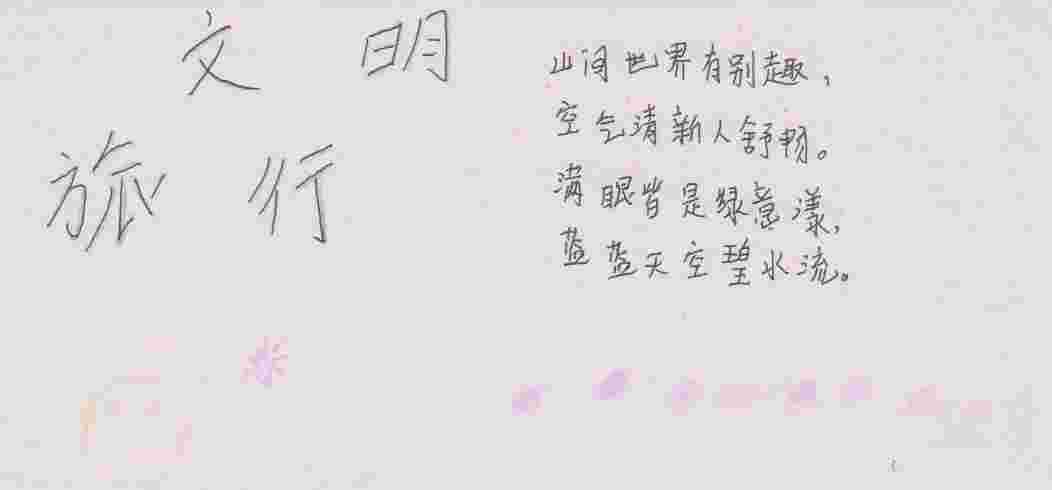 文明
旅行
山间世界有别趣，
空气清新人舒畅。
满眼皆是绿意漾，
蓝蓝天空碧水流。